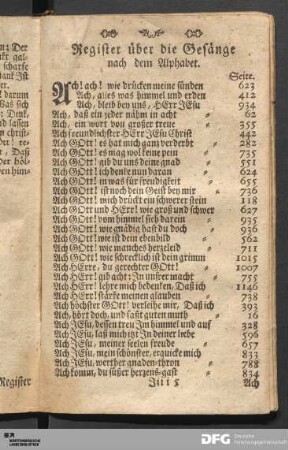 Register über die Gesänge
nach dem Alphabet.
Seite.
Ach! ach! wie drücken meine sünden 623
Ach, alles was himmel und erden 412
Ach, bleib bey uns, HErr JEsu 934
Ach, daß ein jeder nähm in acht 62
Ach, ein wort von großer treue 355
Ach freundlichster HErr JEsu Christ 442
Ach GOtt! es hat mich ganz verderbt 282
Ach GOtt! es mag wol seine pein 735
Ach GOtt! gib du uns deine gnad 551
Ach GOtt! ich denke nun daran 624
Ach GOtt! in was für freudigkeit 655
Ach GOtt! ist noch dein Geist bey mir 736
Ach GOtt! mich drückt ein schwerer stein 118
Ach GOtt und HErr! wie groß und schwer 627
Ach GOtt! vom himmel sieh darein 535
Ach GOtt! wie gnädig hast du doch 936
Ach GOtt! wie ist dein ebenbild 562
Ach GOtt! wie manches herzeleid 711
Ach GOtt! wie schrecklich ist dein grimm 1015
Ach HErre, du gerechter GOtt! 1007
Ach HErr! gib acht: In unsrer macht 755
Ach HErr! lehre mich bedenken, Daß ich 1146
Ach HErr! stärke meinen glauben 738
Ach höchster GOtt! verleihe mir, Daß ich 393
Ach, hört doch, und faßt guten muth 16
Ach JEsu, dessen treu Im himmel und auf 328
Ach JEsu, laß mich itzt In deiner liebe 596
Ach JEsu, meiner seelen freude 657
Ach JEsu, mein schönster, erquicke mich 833
Ach JEsu, werther gnaden-thron 788
Ach komm, du süßer herzens-gast 834
Jiii 5 Ach
Register
DFG Deutsche
Forschungsgemeinschaft